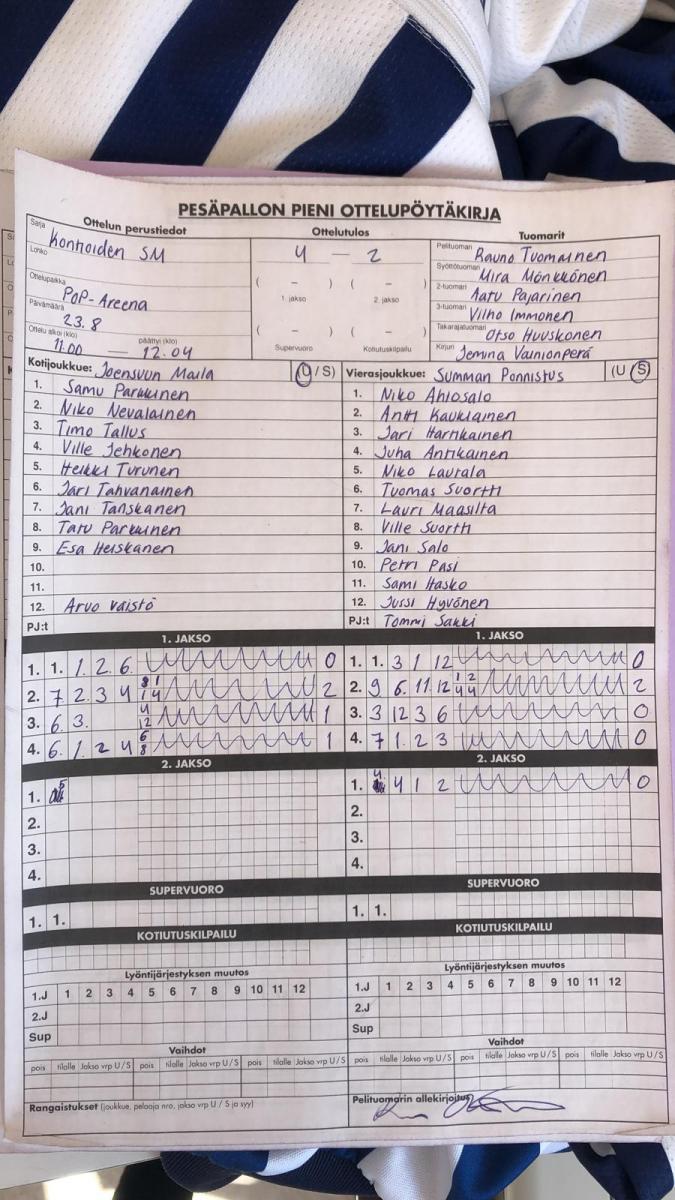 PESÄPALLON PIENI OTTELUPÖYTÄKIRJA
Ottelun perustiedot Ottelutulos Tuomarit
Sarja Konhoiden SM
Lohko
Ottelupaikka POP-Areena
Päivämäärä 23.8
Ottelu alkoi (klo) 11.00 — päättyi (klo) 12.04
4 — 2
( – ) ( – )
1. jakso 2. jakso
( – ) ( – )
Supervuoro Kotiutuskilpailu
Pelituomari Rauno Tuomainen
Syöttötuomari Mira Mönkkönen
2-tuomari Aatu Pajarinen
3-tuomari Vilho Immonen
Takarajatuomari Otso Huuskonen
Kirjuri Jemina Vainionperä
Kotijoukkue: Joensuun Maila (U / S)
1. Samu Parkkinen
2. Niko Nevalainen
3. Timo Tallus
4. Ville Jehkonen
5. Heikki Turunen
6. Jari Tahvanainen
7. Jani Tanskanen
8. Tatu Parkkinen
9. Esa Heiskanen
10.
11.
12. Arvo väistö
PJ:t
Vierasjoukkue: Summan Ponnistus (U S)
1. Niko Ahlosalo
2. Antti Kaukiainen
3. Jari Harnkainen
4. Juha Antikainen
5. Niko Laurala
6. Tuomas Suortti
7. Lauri Maasilta
8. Ville Suortti
9. Jani Salo
10. Petri Pasi
11. Sami Hasko
12. Jussi Hyvönen
PJ:t Tommi Sakki
1. JAKSO
1. 1. 1. 2. 6. 0
2. 7 2. 3 4 2
3. 6. 3. 4 12 1
4. 6. 1. 2 4 6 8 1
2. JAKSO
1.
2.
3.
4.
SUPERVUORO
1. 1.
KOTIUTUSKILPAILU
Lyöntijärjestyksen muutos
1.J 1 2 3 4 5 6 7 8 9 10 11 12
2.J
Sup
Vaihdot
pois tilalle Jakso vrp U / S pois tilalle Jakso vrp U / S pois tilalle Jakso vrp U / S
Rangaistukset (joukkue, pelaaja nro, jakso vrp U / S ja syy)
1. JAKSO
1. 1. 3 1 12 0
2. 9 6. 11. 12 1 2 4 4 2
3. 3 12 3 6 0
4. 7 1. 2 3 0
2. JAKSO
1. 4. 4 1 2 0
2.
3.
4.
SUPERVUORO
1. 1.
KOTIUTUSKILPAILU
Lyöntijärjestyksen muutos
1.J 1 2 3 4 5 6 7 8 9 10 11 12
2.J
Sup
Vaihdot
pois tilalle Jakso vrp U / S pois tilalle Jakso vrp U / S pois tilalle Jakso vrp U / S
Pelituomarin allekirjoitus